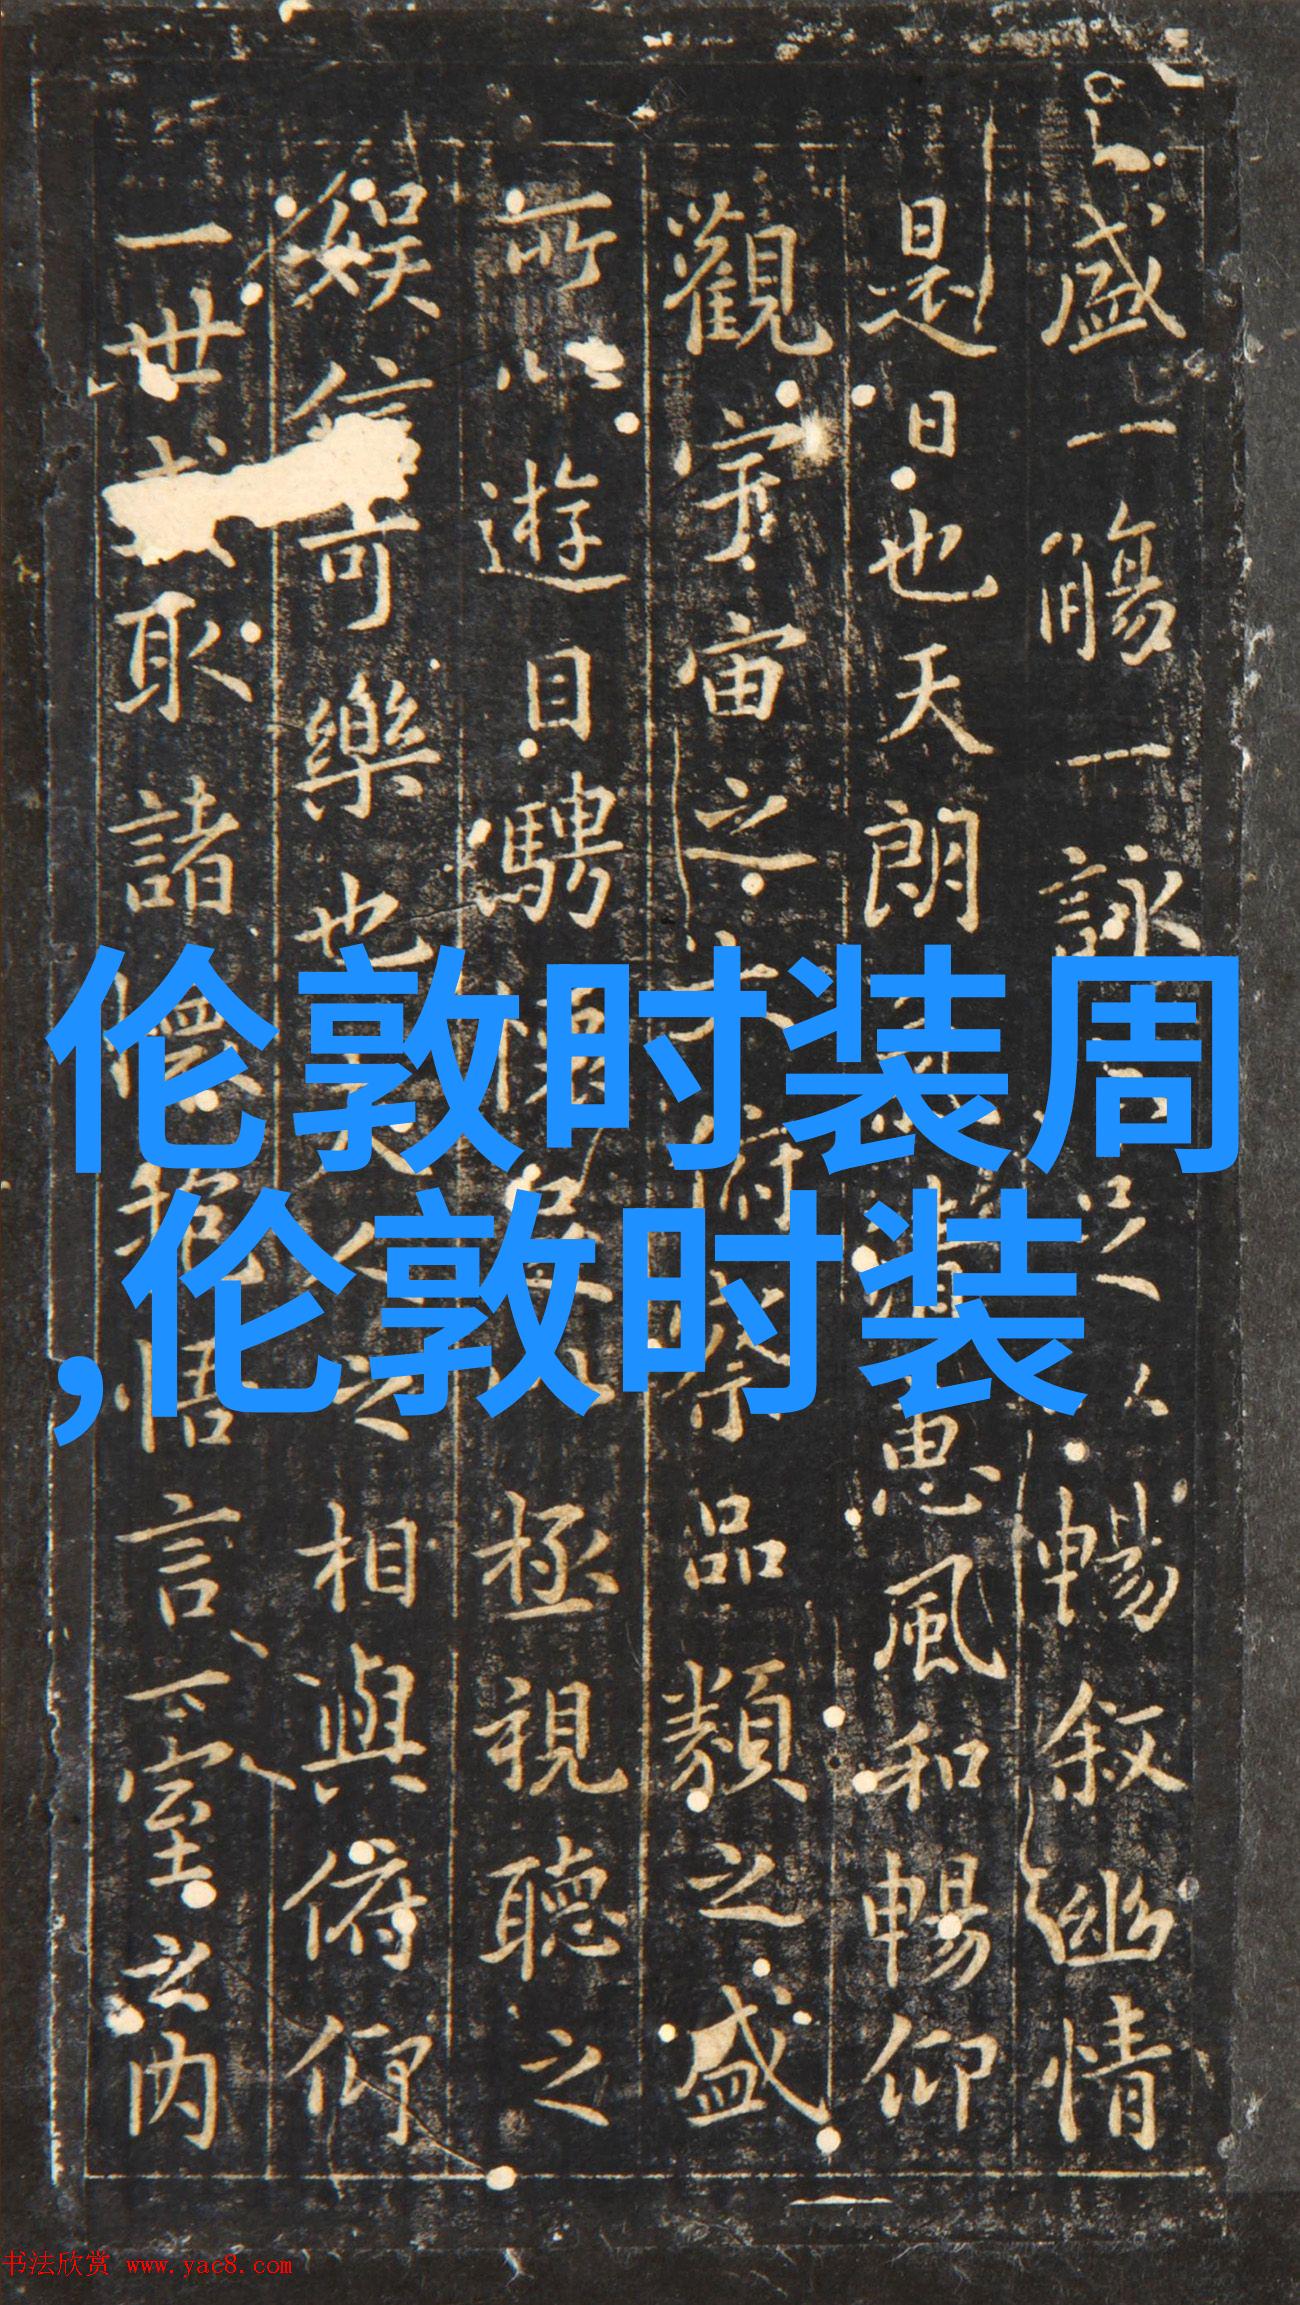 盛一觴一詠足以暢叙幽情
是日也天朗清惠風和暢仰
觀宇宙之大俯察品類之盛
所以遊目騁懷足以極視聽之
娱信可樂也夫人之相與俯仰
一世或取諸懷抱悟言一室之内
伦敦时装周
,伦敦时装
书法欣赏 www.yac8.com